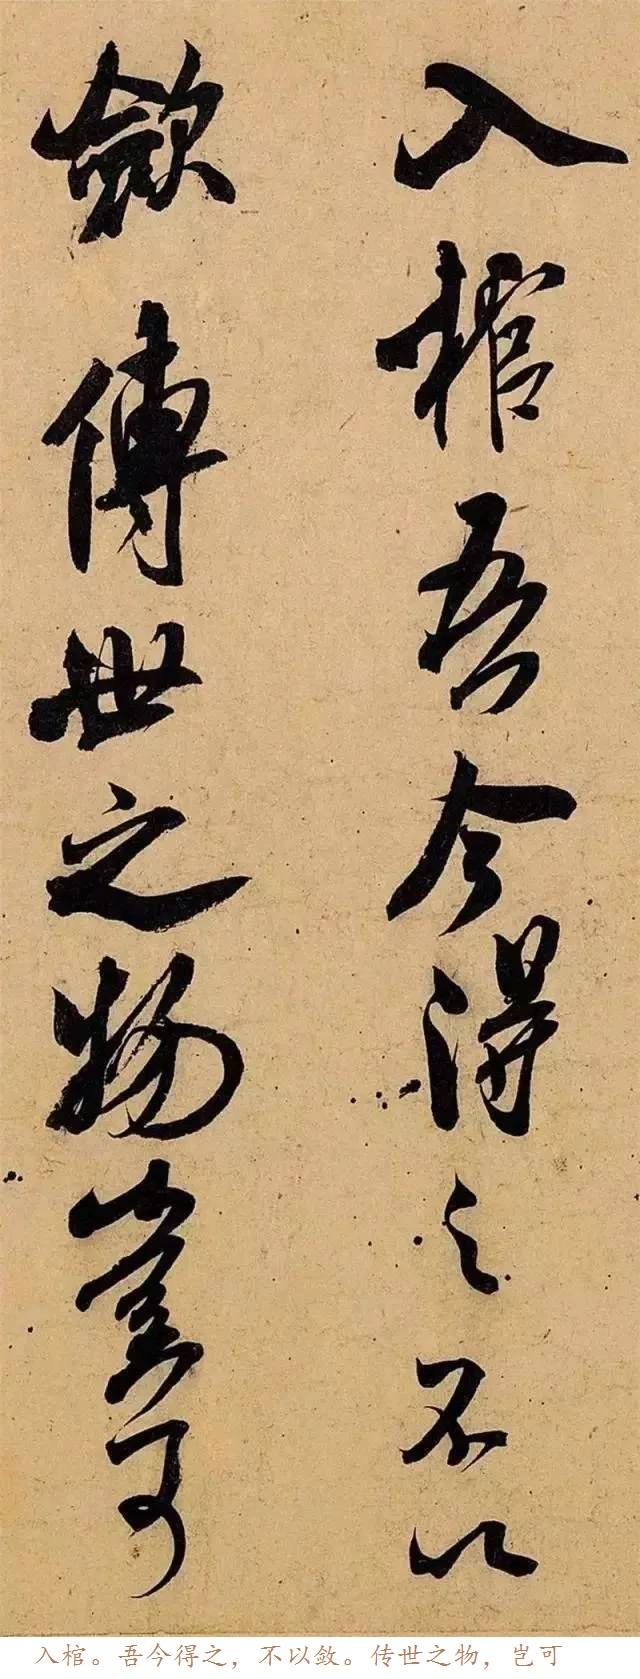 入棺吾今得之不以
斂傳世之物豈可
入棺。吾今得之，不以敛。传世之物，岂可